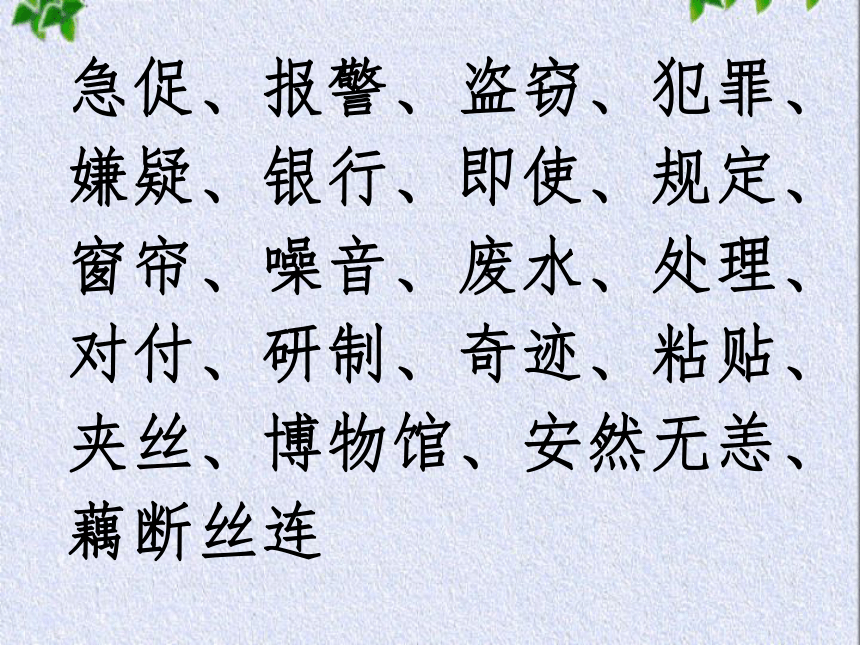 急促、报警、盗窃、犯罪、
嫌疑、银行、即使、规定、
窗帘、噪音、废水、处理、
对付、研制、奇迹、粘贴、
夹丝、博物馆、安然无恙、
藕断丝连